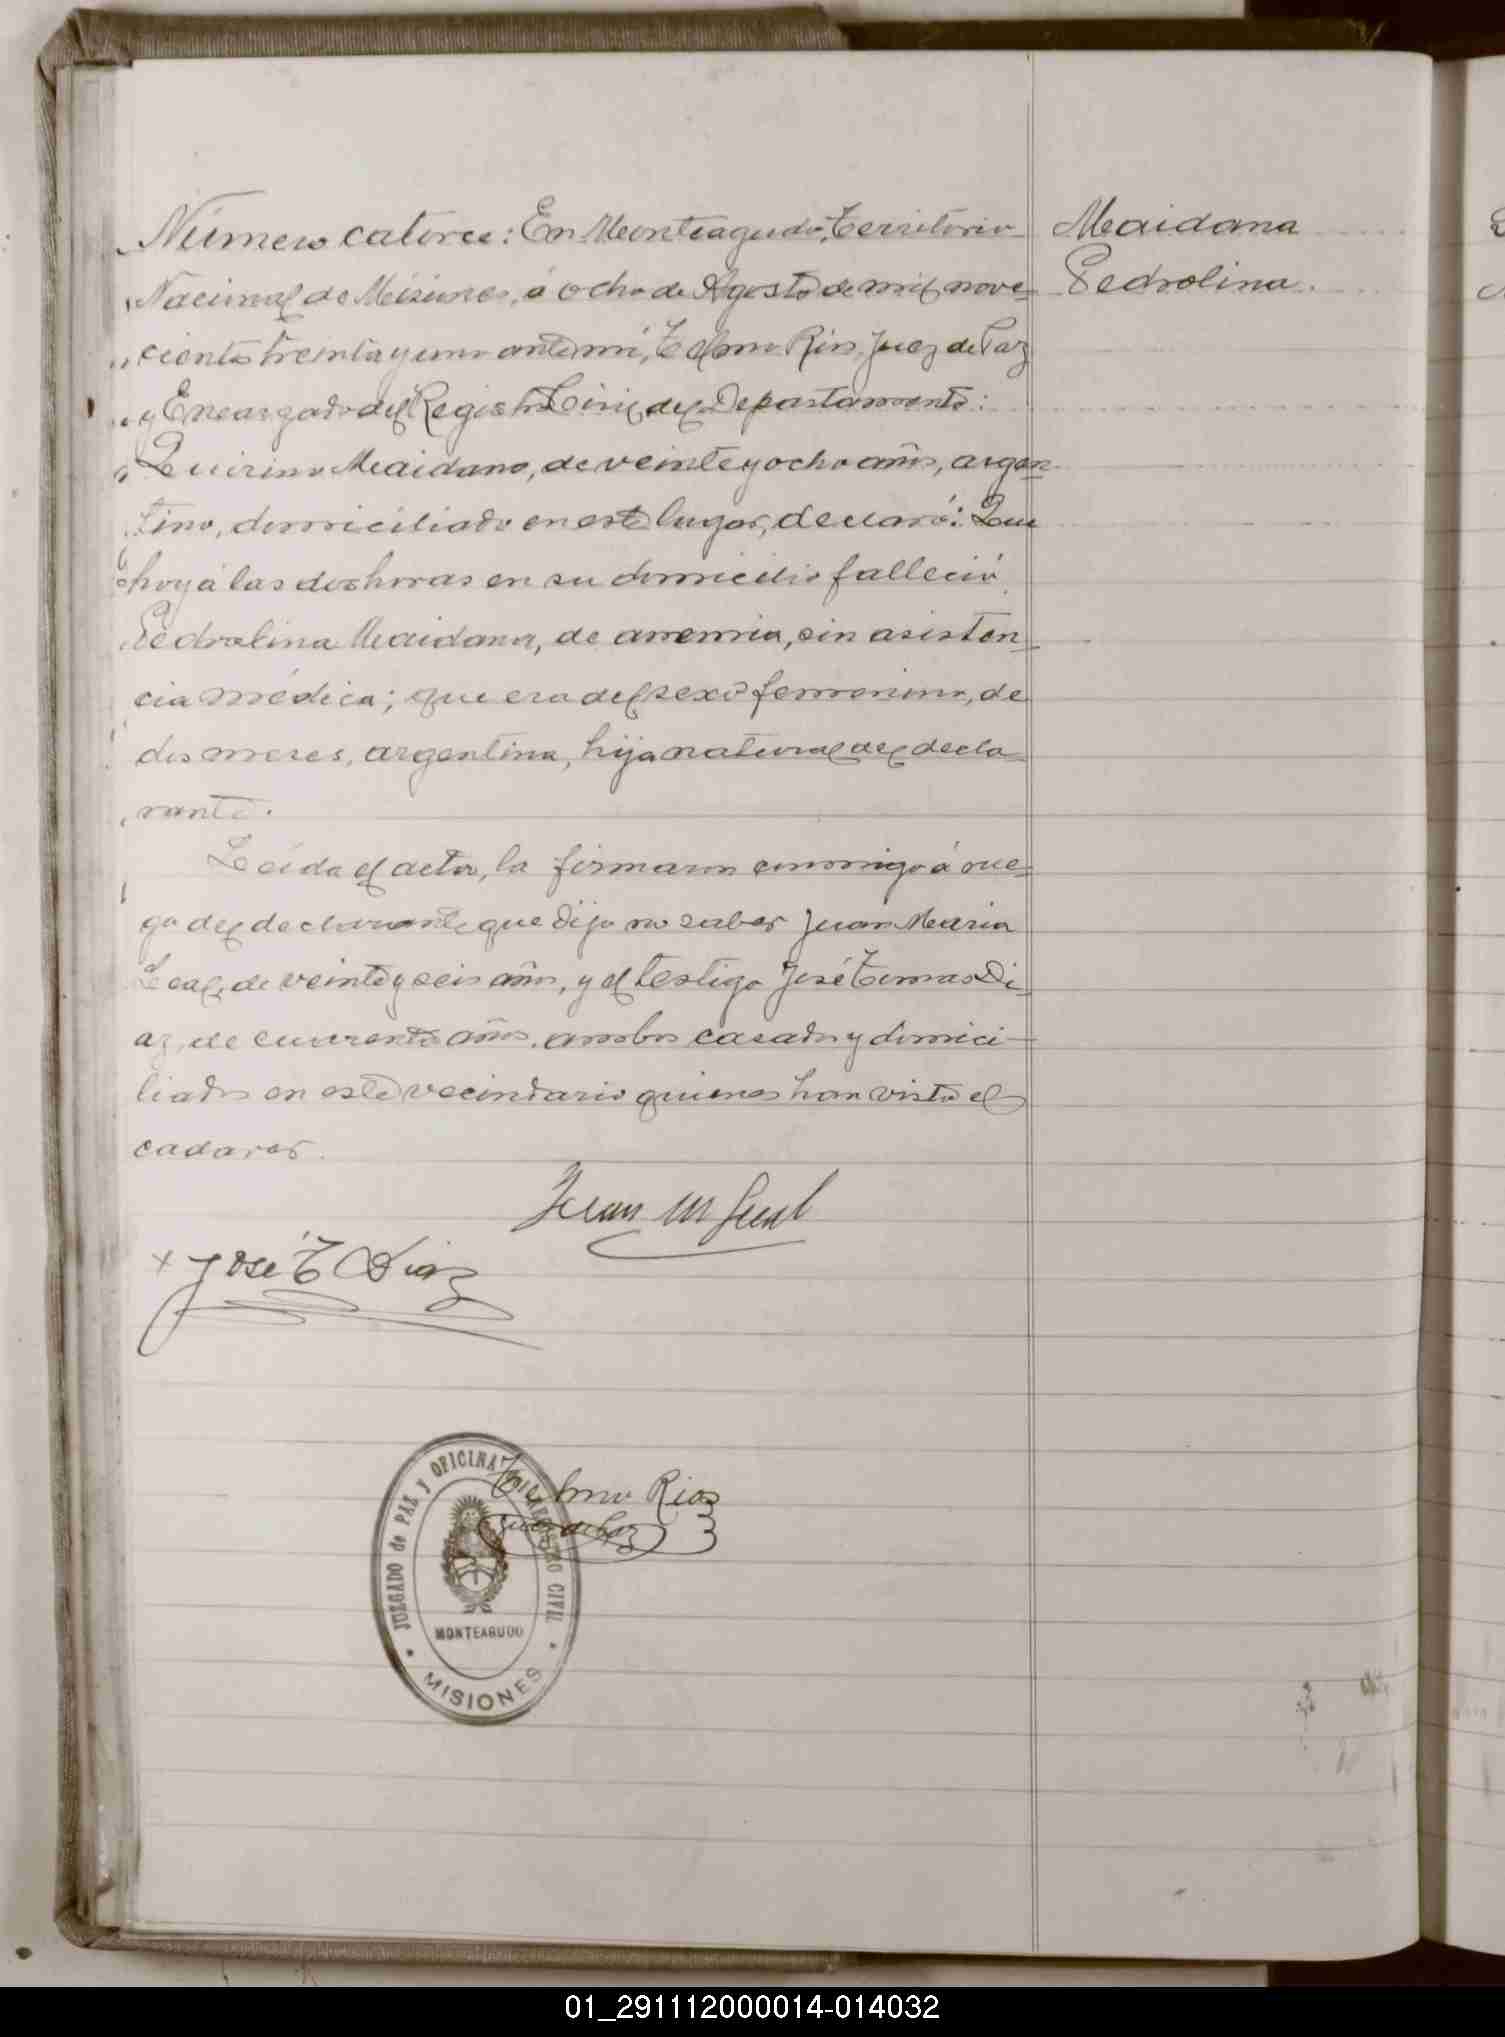 Número catorce: En Monteagudo, Territorio
Nacional de Misiones, á ocho de Agosto de mil nove-
cientos treinta y uno ante mí, Telmo Rios, Juez de Paz
y Encargado del Registro Civil del Departamento:
Quirino Maidana, de veinte y ocho años, argen-
tino, domiciliado en este lugar, declaró: Que
hoy á las dos horas en su domicilio falleció
Pedrolina Maidana, de anemia, sin asisten-
cia médica; que era del sexo femenino, de
dos meses, argentina, hija natural del decla-
rante.
Leída el acta, la firmaron conmigo á rue-
go del declarante que dijo no saber Juan Maria
Leal, de veinte y seis años, y el testigo José Tomas Di-
az, de cuarenta años, ambos casados y domici-
liados en este vecindario quienes han visto el
cadaver.
Maidana
Pedrolina.
Juan M Leal
x José T Diaz
Telmo Rios
Juez de Paz
JUZGADO de PAZ Y OFICINA DEL REGISTRO CIVIL
MONTEAGUDO
* MISIONES *
01_291112000014-014032